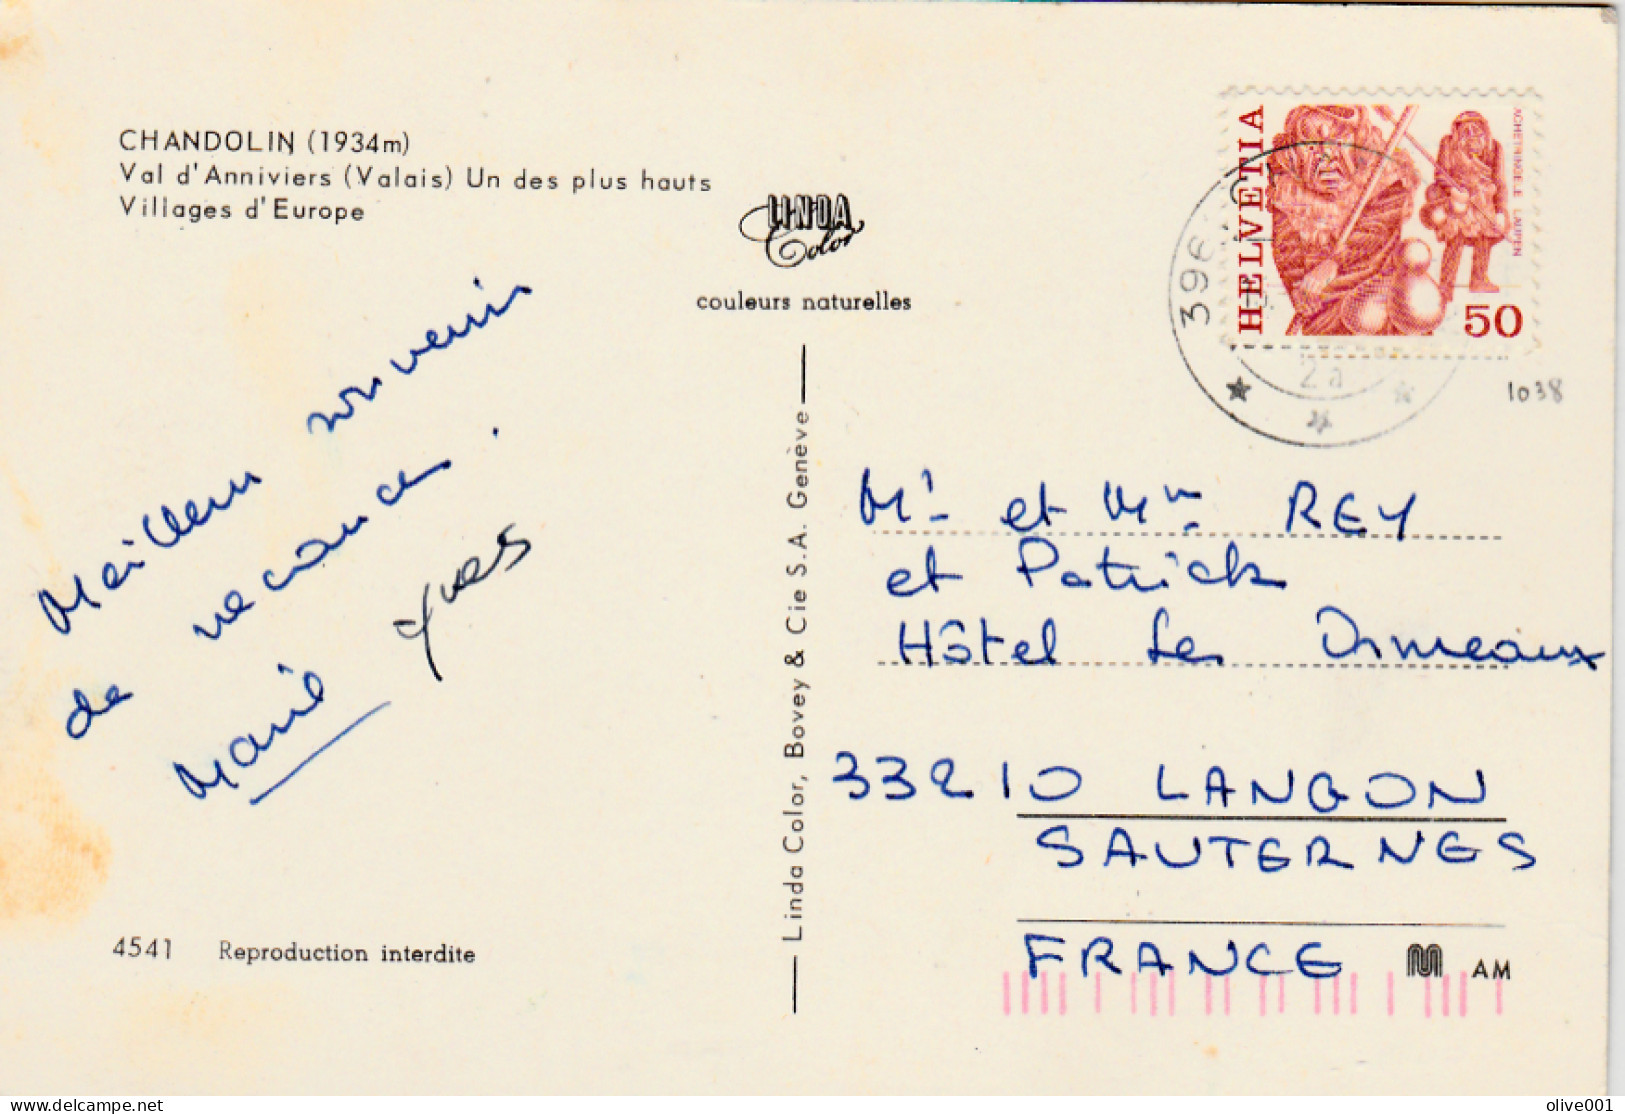 CHANDOLIN (1934m)
Val d'Anniviers (Valais) Un des plus hauts
Villages d'Europe
LINDA
Color
couleurs naturelles
HELVETIA
ACHETRINGELE LAUPEN
50
396
2a
1038
Meilleurs souvenirs
de vacances.
Yves
Linda Color, Bovey & Cie S.A. Genève
Mr et Mme REY
et Patrick
Hôtel Les Ormeaux
33210 LANGON
SAUTERNES
FRANCE
AM
4541 Reproduction interdite
olive001